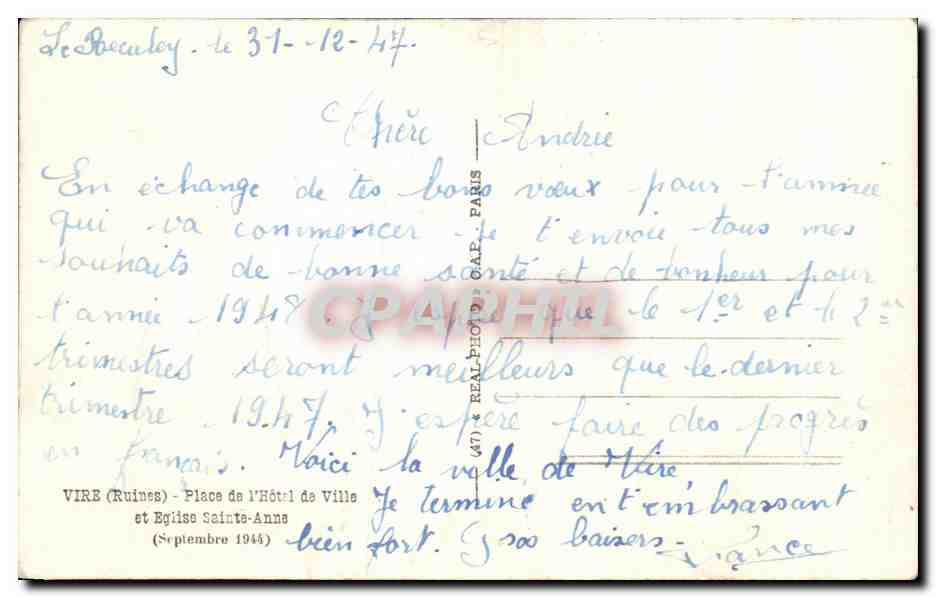 Le Reculey. le 31-12-47.
Chère Andrée
En échange de tes bons vœux pour l'année
qui va commencer je t'envoie tous mes
souhaits de bonne santé et de bonheur pour
l'année 1948. J'espère que le 1er et le 2me
trimestres seront meilleurs que le dernier
trimestre 1947. J'espère faire des progrès
en français. Voici la ville de Vire
Je termine en t'embrassant
bien fort. baisers.
France
VIRE (Ruines) - Place de l'Hôtel de Ville
et Eglise Sainte-Anne
(Septembre 1944)
(47) « REAL-PHOTO » C.A.P. - PARIS
CPAPHIL